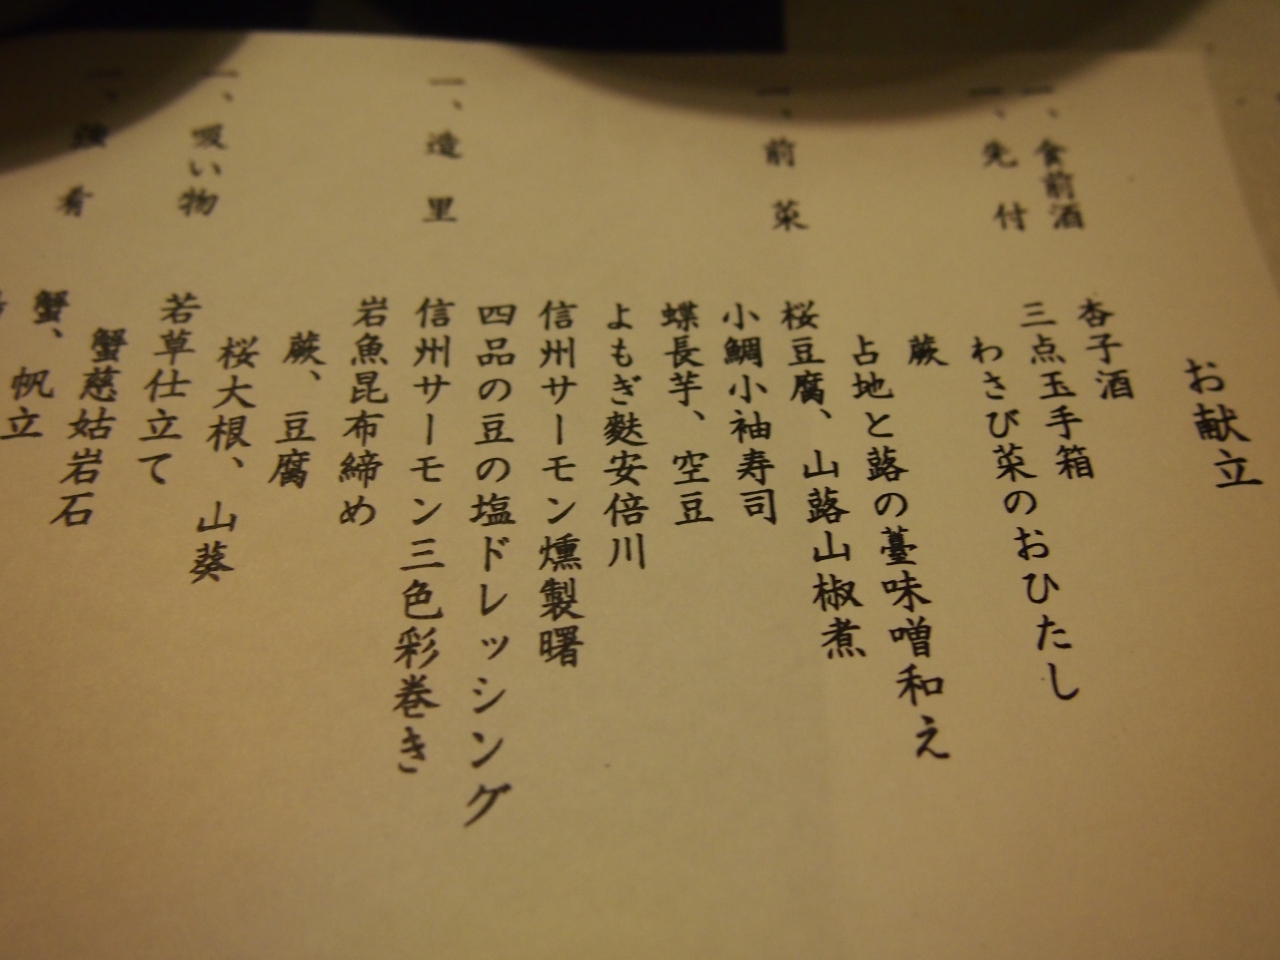 お献立
一、食前酒 杏子酒
一、先付 三点玉手箱
わさび菜のおひたし
蕨
占地と蕗の薹味噌和え
一、前菜 桜豆腐、山蕗山椒煮
小鯛小袖寿司
蝶長芋、空豆
よもぎ麩安倍川
信州サーモン燻製曙
四品の豆の塩ドレッシング
一、造里 信州サーモン三色彩巻き
岩魚昆布締め
蕨、豆腐
桜大根、山葵
一、吸い物 若草仕立て
蟹慈姑岩石
一、強肴 蟹、帆立